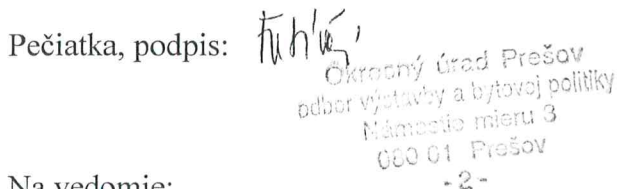 Pečiatka, podpis:
Okresný úrad Prešov
odbor výstavby a bytovej politiky
Námestie mieru 3
080 01 Prešov
- 2 -
Na vedomie: